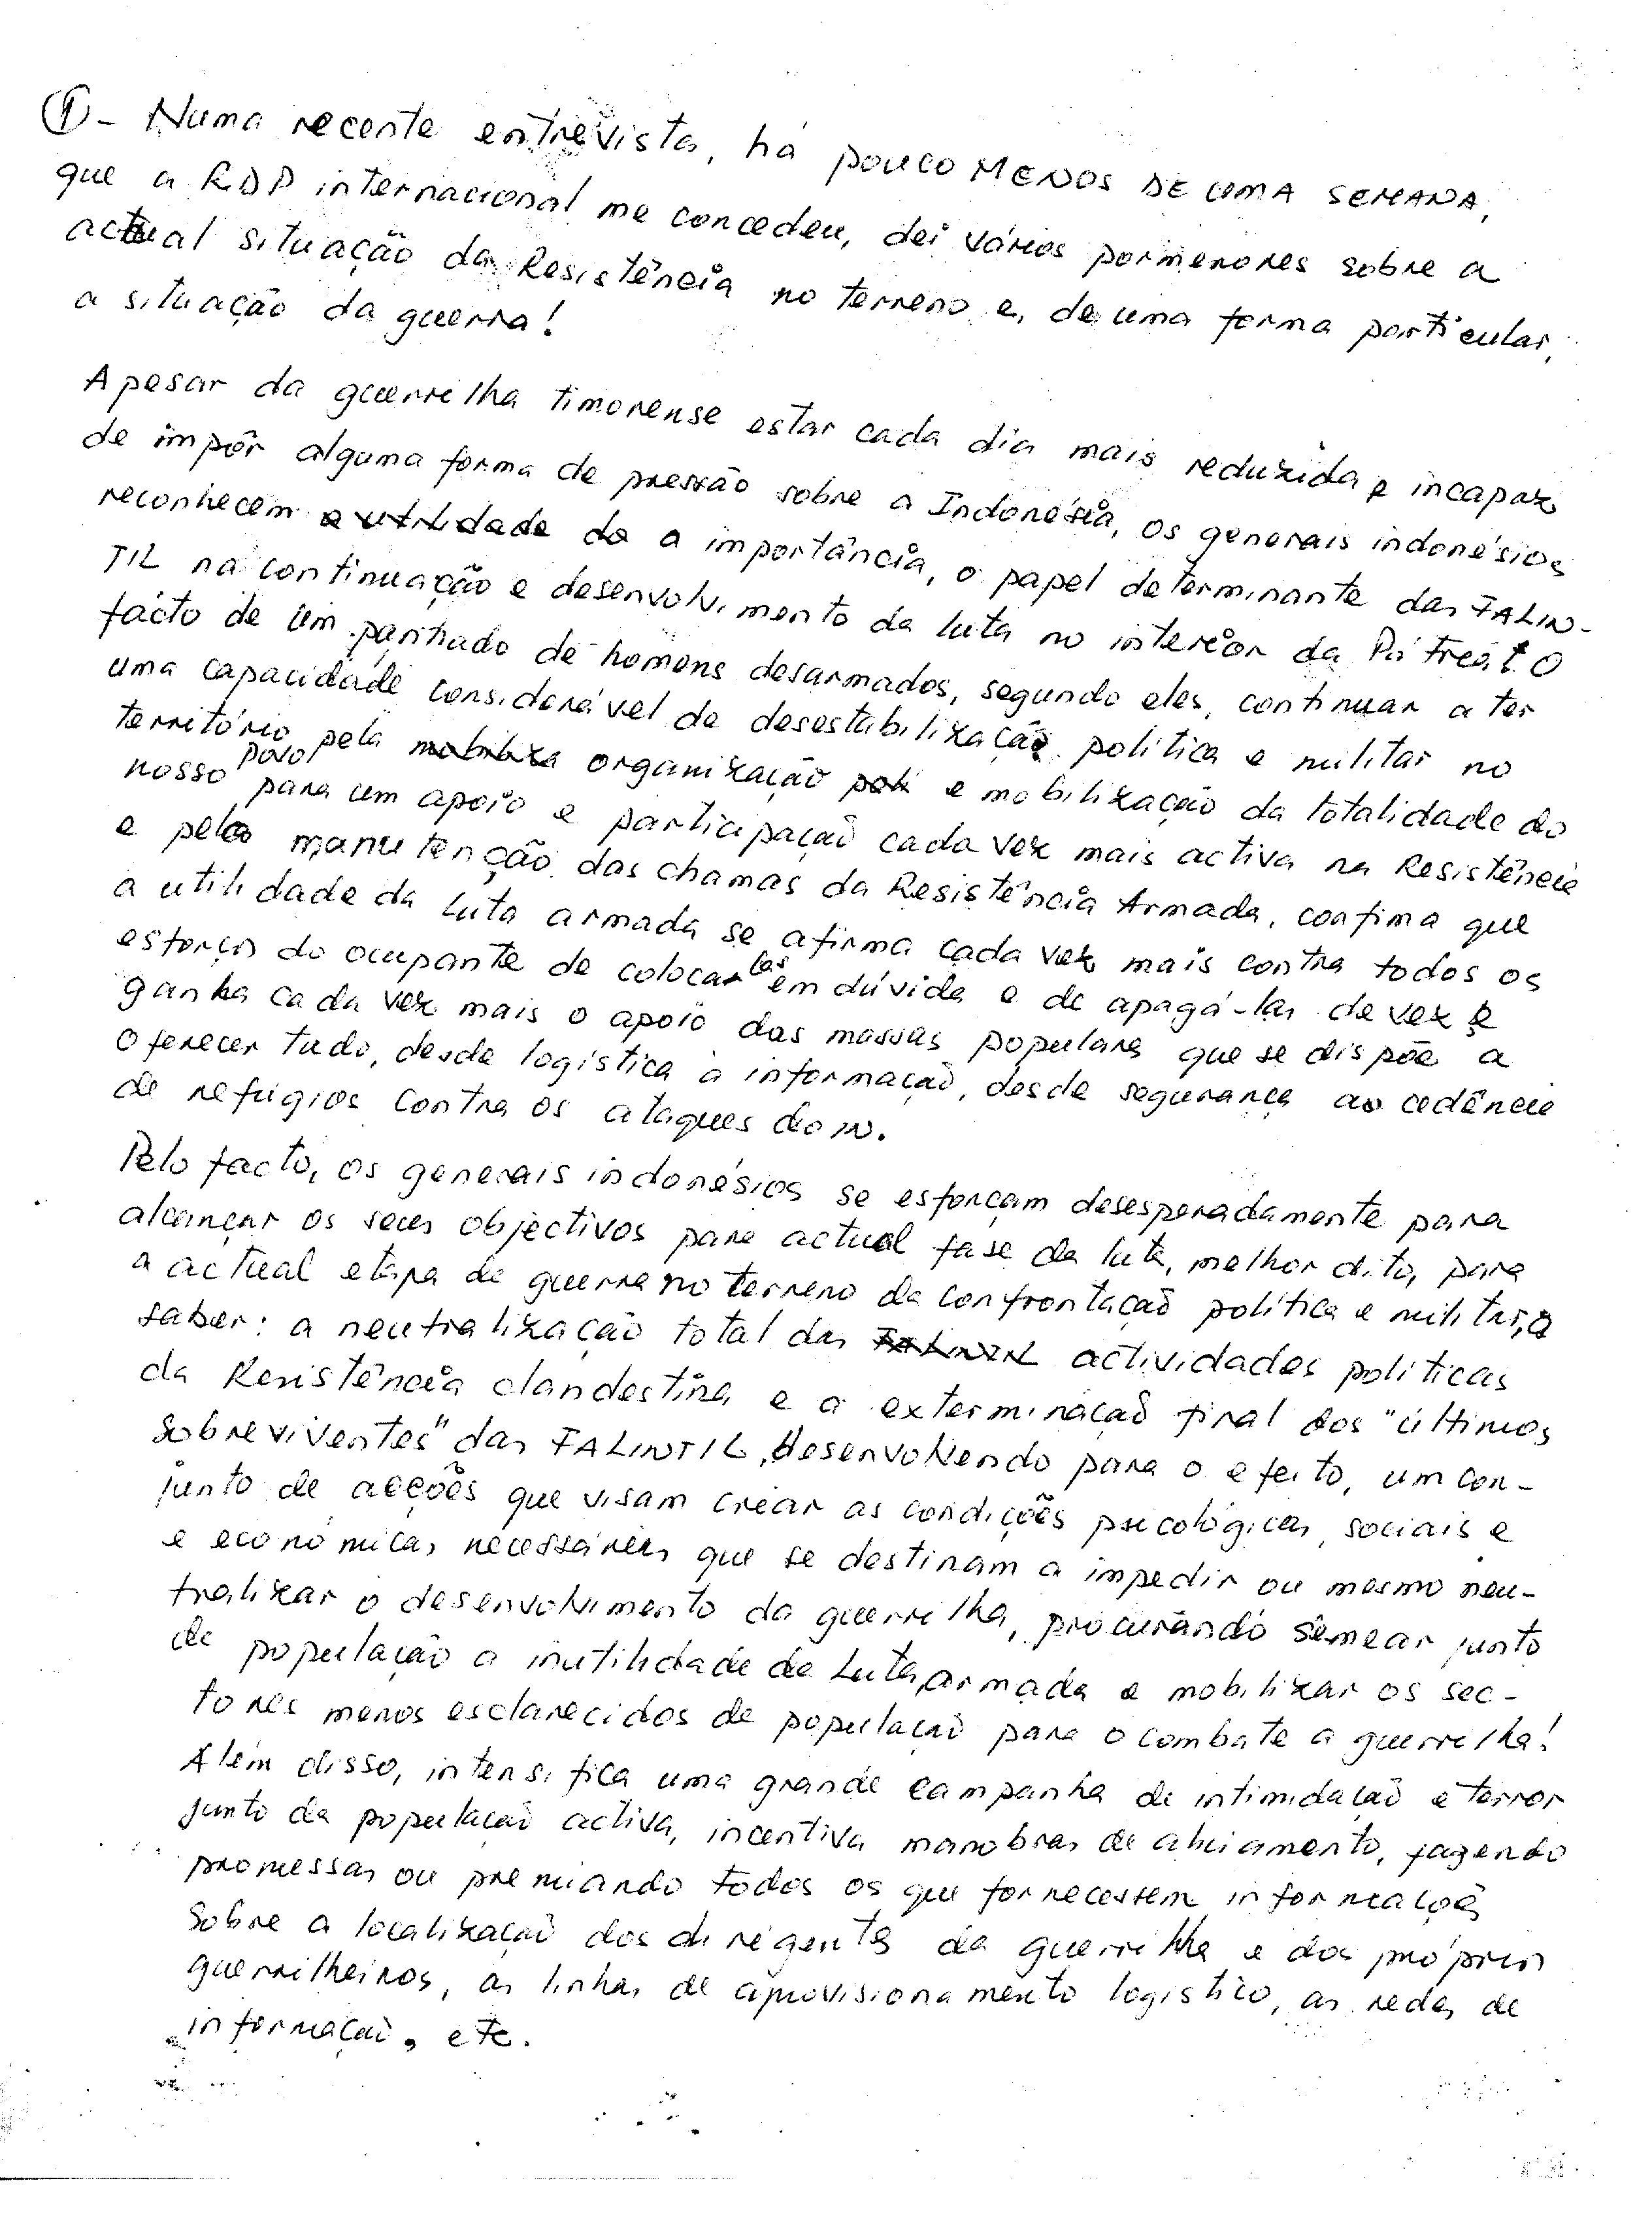 ① - Numa recente entrevista, há pouco MENOS DE UMA SEMANA,
que a RDP internacional me concedeu, dei vários pormenores sobre a
actual situação da Resistência no terreno e, de uma forma particular,
a situação da guerra!
Apesar da guerrilha timorense estar cada dia mais reduzida e incapaz
de impôr alguma forma de pressão sobre a Indonésia, os generais indonésios
reconhecem a utilidade da a importância, o papel determinante das FALIN-
TIL na continuação e desenvolvimento da luta no interior da Pátria! O
facto de um panhado de homens desarmados, segundo eles, continuar a ter
uma capacidade considerável de desestabilização política e militar no
território pela mobiliza organização poli e mobilização da totalidade do
nosso povo para um apoio e participação cada vez mais activa na Resistência
e pela manutenção das chamas da Resistência Armada, confima que
a utilidade da luta armada se afirma cada vez mais contra todos os
esforços do ocupante de colocar las em dúvida e de apagá-las de vez e
ganha cada vez mais o apoio das massas populares que se dispõe a
oferecer tudo, desde logística à informação, desde segurança ao cedência
de refúgios contra os ataques do IN.
Pelo facto, os generais indonésios se esforçam desesperadamente para
alcançar os seus objectivos para actual fase da luta, melhor dito, para
a actual etapa de guerra no terreno da confrontação política e militar, a
saber: a neutralização total das FALINTIL actividades políticas
da Resistência clandestina e a exterminação final dos "últimos
sobreviventes" das FALINTIL, desenvolvendo para o efeito, um con-
junto de acções que visam criar as condições psicológicas, sociais e
e económicas necessárias que se destinam a impedir ou mesmo neu-
tralizar o desenvolvimento da guerrilha, procurando semear junto
de população a inutilidade de luta armada e mobilizar os sec-
tores menos esclarecidos de população para o combate a guerrilha!
Além disso, intensifica uma grande campanha de intimidação e terror
junto da população activa, incentiva manobras de aliciamento, fazendo
promessas ou premiando todos os que fornecessem informações
sobre a localização dos dirigentes da guerrilha e dos próprios
guerrilheiros, as linhas de aprovisionamento logístico, as redes de
informação, etc.